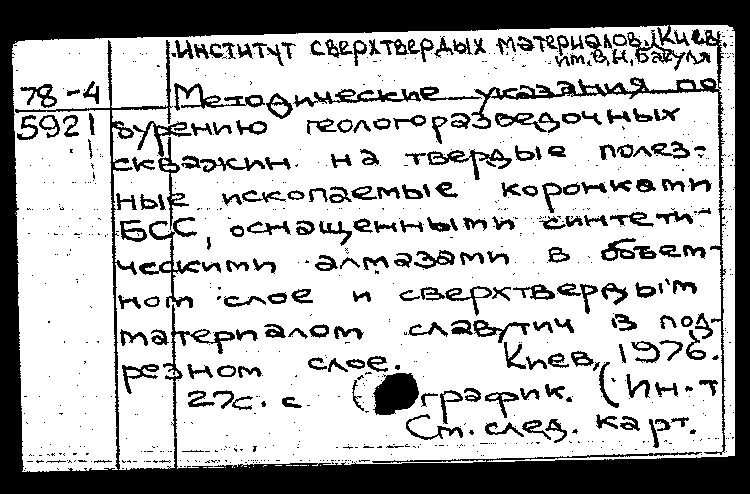 Институт сверхтвердых материалов, Киев.
им. В.Н. Бакуля
78-4 Методические указания по
5921 бурению геологоразведочных
скважин на твердые полез-
ные ископаемые коронками
БСС, оснащенными синтети-
ческими алмазами в объем-
ном слое и сверхтвердым
материалом славутич в под-
резном слое. Киев, 1976.
27с. с график. (Ин-т
См. след. карт.